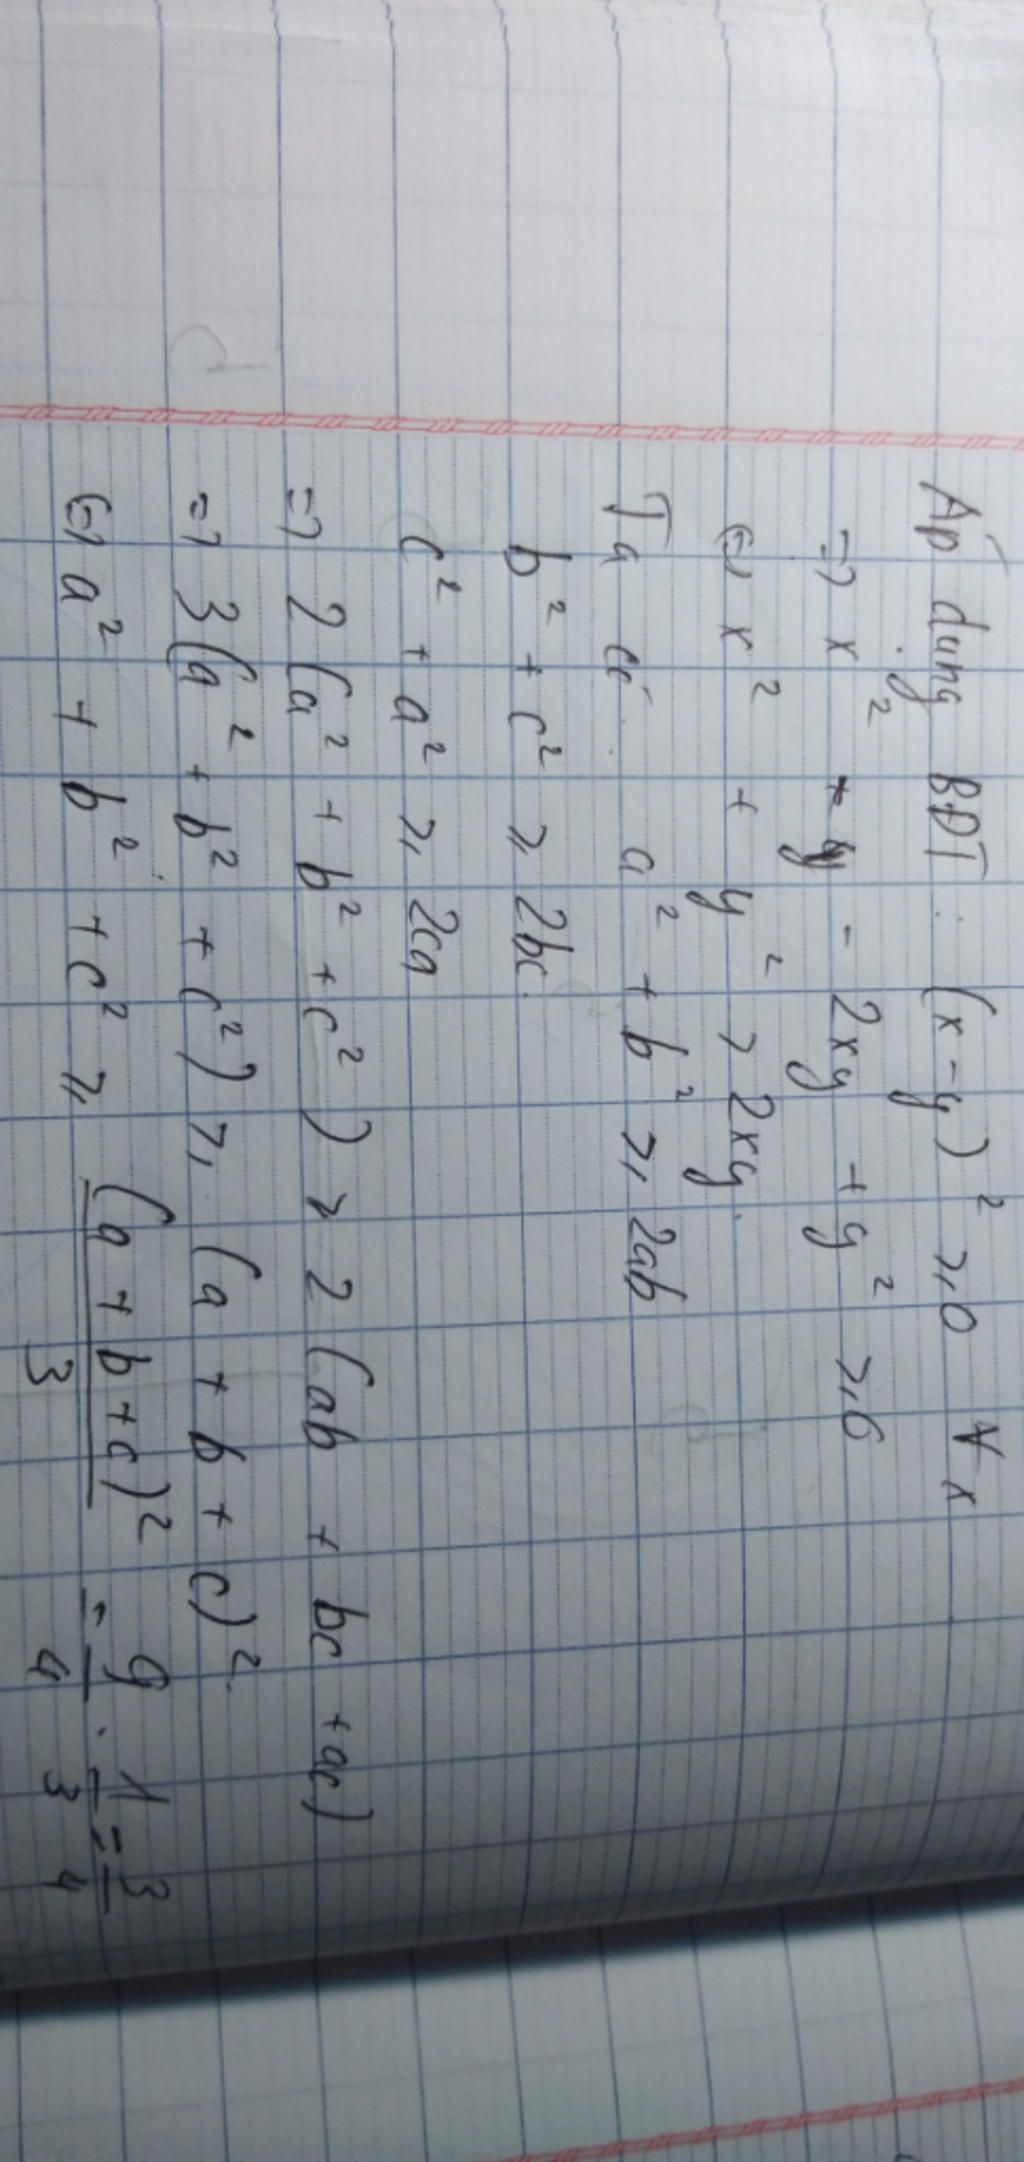 Áp dụng BĐT : (x-y)² ≥ 0 ∀ x
=> x² - 2xy + y² ≥ 0
<=> x² + y² ≥ 2xy.
Ta có: a² + b² ≥ 2ab
b² + c² ≥ 2bc.
c² + a² ≥ 2ca
=> 2(a² + b² + c²) ≥ 2(ab + bc + ac)
=> 3(a² + b² + c²) ≥ (a + b + c)².
<=> a² + b² + c² ≥ (a + b + c)²/3 = 9/4 . 1/3 = 3/4